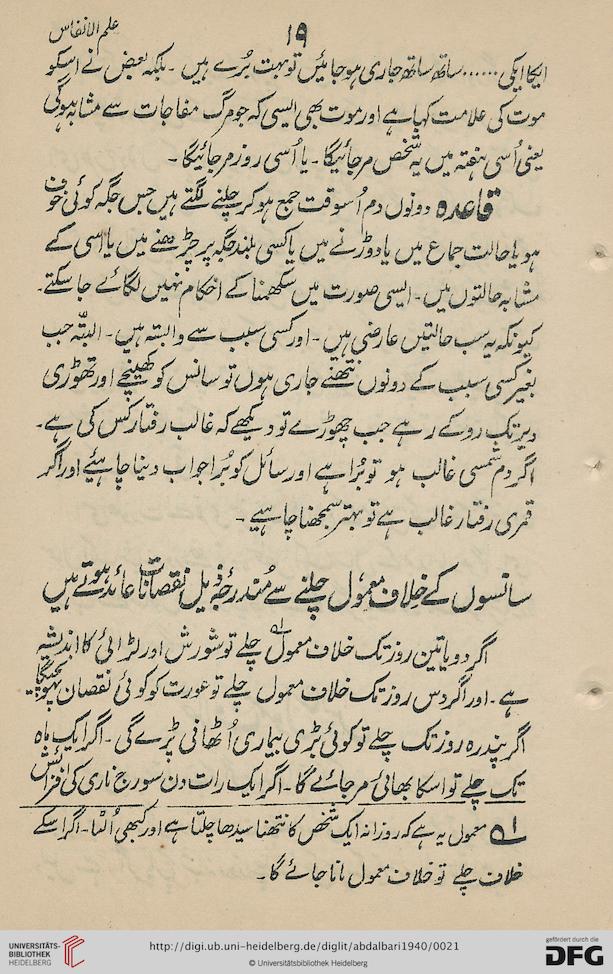 علم الانفاس
۱۹
ایکا ایکی ...... ساتھ ساتھ جاری ہو جائیں تو بہت بُرے ہیں ۔ بلکہ بعض نے اسکو
موت کی علامت کہا ہے اور موت بھی ایسی کہ جو مرگ مفاجات سے مشابہ ہوگی
یعنی اُسی ہفتہ میں یہ شخص مر جائیگا ۔ یا اُسی روز مر جائیگا ۔
قاعدہ دونوں دم اُسوقت جمع ہو کر چلنے لگتے ہیں جس جگہ کوئی خوف
ہو یا حالت جماع میں یا دوڑنے میں یا کسی بلند جگہ پر چڑھنے میں یا اسی کے
مشابہ حالتوں میں ۔ ایسی صورت میں سکھمنا کے احکام نہیں لگائے جا سکتے ۔
کیونکہ یہ سب حالتیں عارضی ہیں ۔ اور کسی سبب سے وابستہ ہیں ۔ البتہ جب
بغیر کسی سبب کے دونوں نتھنے جاری ہوں تو سانس کو کھینچے اور تھوڑی
دیر تک روکے رہے جب چھوڑے تو دیکھے کہ غالب رفتار کس کی ہے ۔
اگر دم شمسی غالب ہو تو بُرا ہے اور سائل کو بُرا جواب دینا چاہئیے اور اگر
قمری رفتار غالب ہے تو بہتر سمجھنا چاہیے ۔
سانسوں کے خلاف معمول چلنے سے مُندرجہ ذیل نقصانات عائد ہوتے ہیں
اگر دو یا تین روز تک خلاف معمول لہ چلے تو شورش اور لڑائی کا اندیشہ
ہے ۔ اور اگر دس روز تک خلاف معمول چلے تو عورت کو کوئی نقصان پہونچیگا
اگر پندرہ روز تک چلے تو کوئی بڑی بیماری اُٹھانی پڑے گی ۔ اگر ایک ماہ
تک چلے تو اسکا بھائی مر جائے گا ۔ اگر ایک رات دن سورج ناری کی افزائش
لہ معمول یہ ہے کہ روزانہ ایک شخص کا نتھنا سیدھا چلتا ہے اور کبھی اُلٹا ۔ اگر اسکے
خلاف چلے تو خلاف معمول مانا جائے گا ۔
UNIVERSITÄTS-BIBLIOTHEK HEIDELBERG
http://digi.ub.uni-heidelberg.de/diglit/abdalbari1940/0021
© Universitätsbibliothek Heidelberg
gefördert durch die
DFG